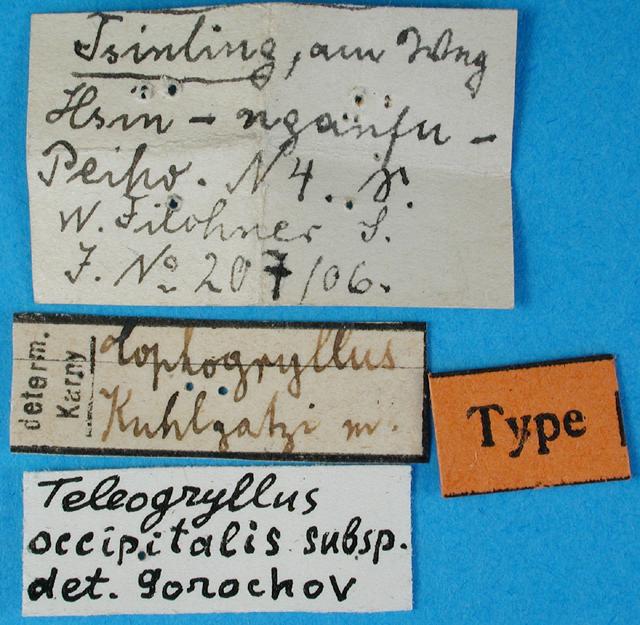 Tsinling, am Weg
Hsin - nganfu -
Peiho. N 4. V.
W. Filchner S.
J. No 207/06.
determ.
Karny
Lophogryllus
Kuhlgatzi m.
Type
Teleogryllus
occipitalis subsp.
det. Gorochov